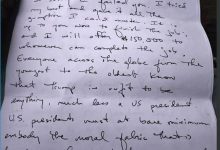 failed you, I tried
my best and gave it all the
gumption I could muster. It's up
to you now to finish the job;
and I will offer $150,000 to
whomever can complete the job.
Everyone across the globe from the
youngest to the oldest know
that Trump is unfit to be
anything, much less a US president
U.S. presidents must at bare minimum
embody the moral fabric that is